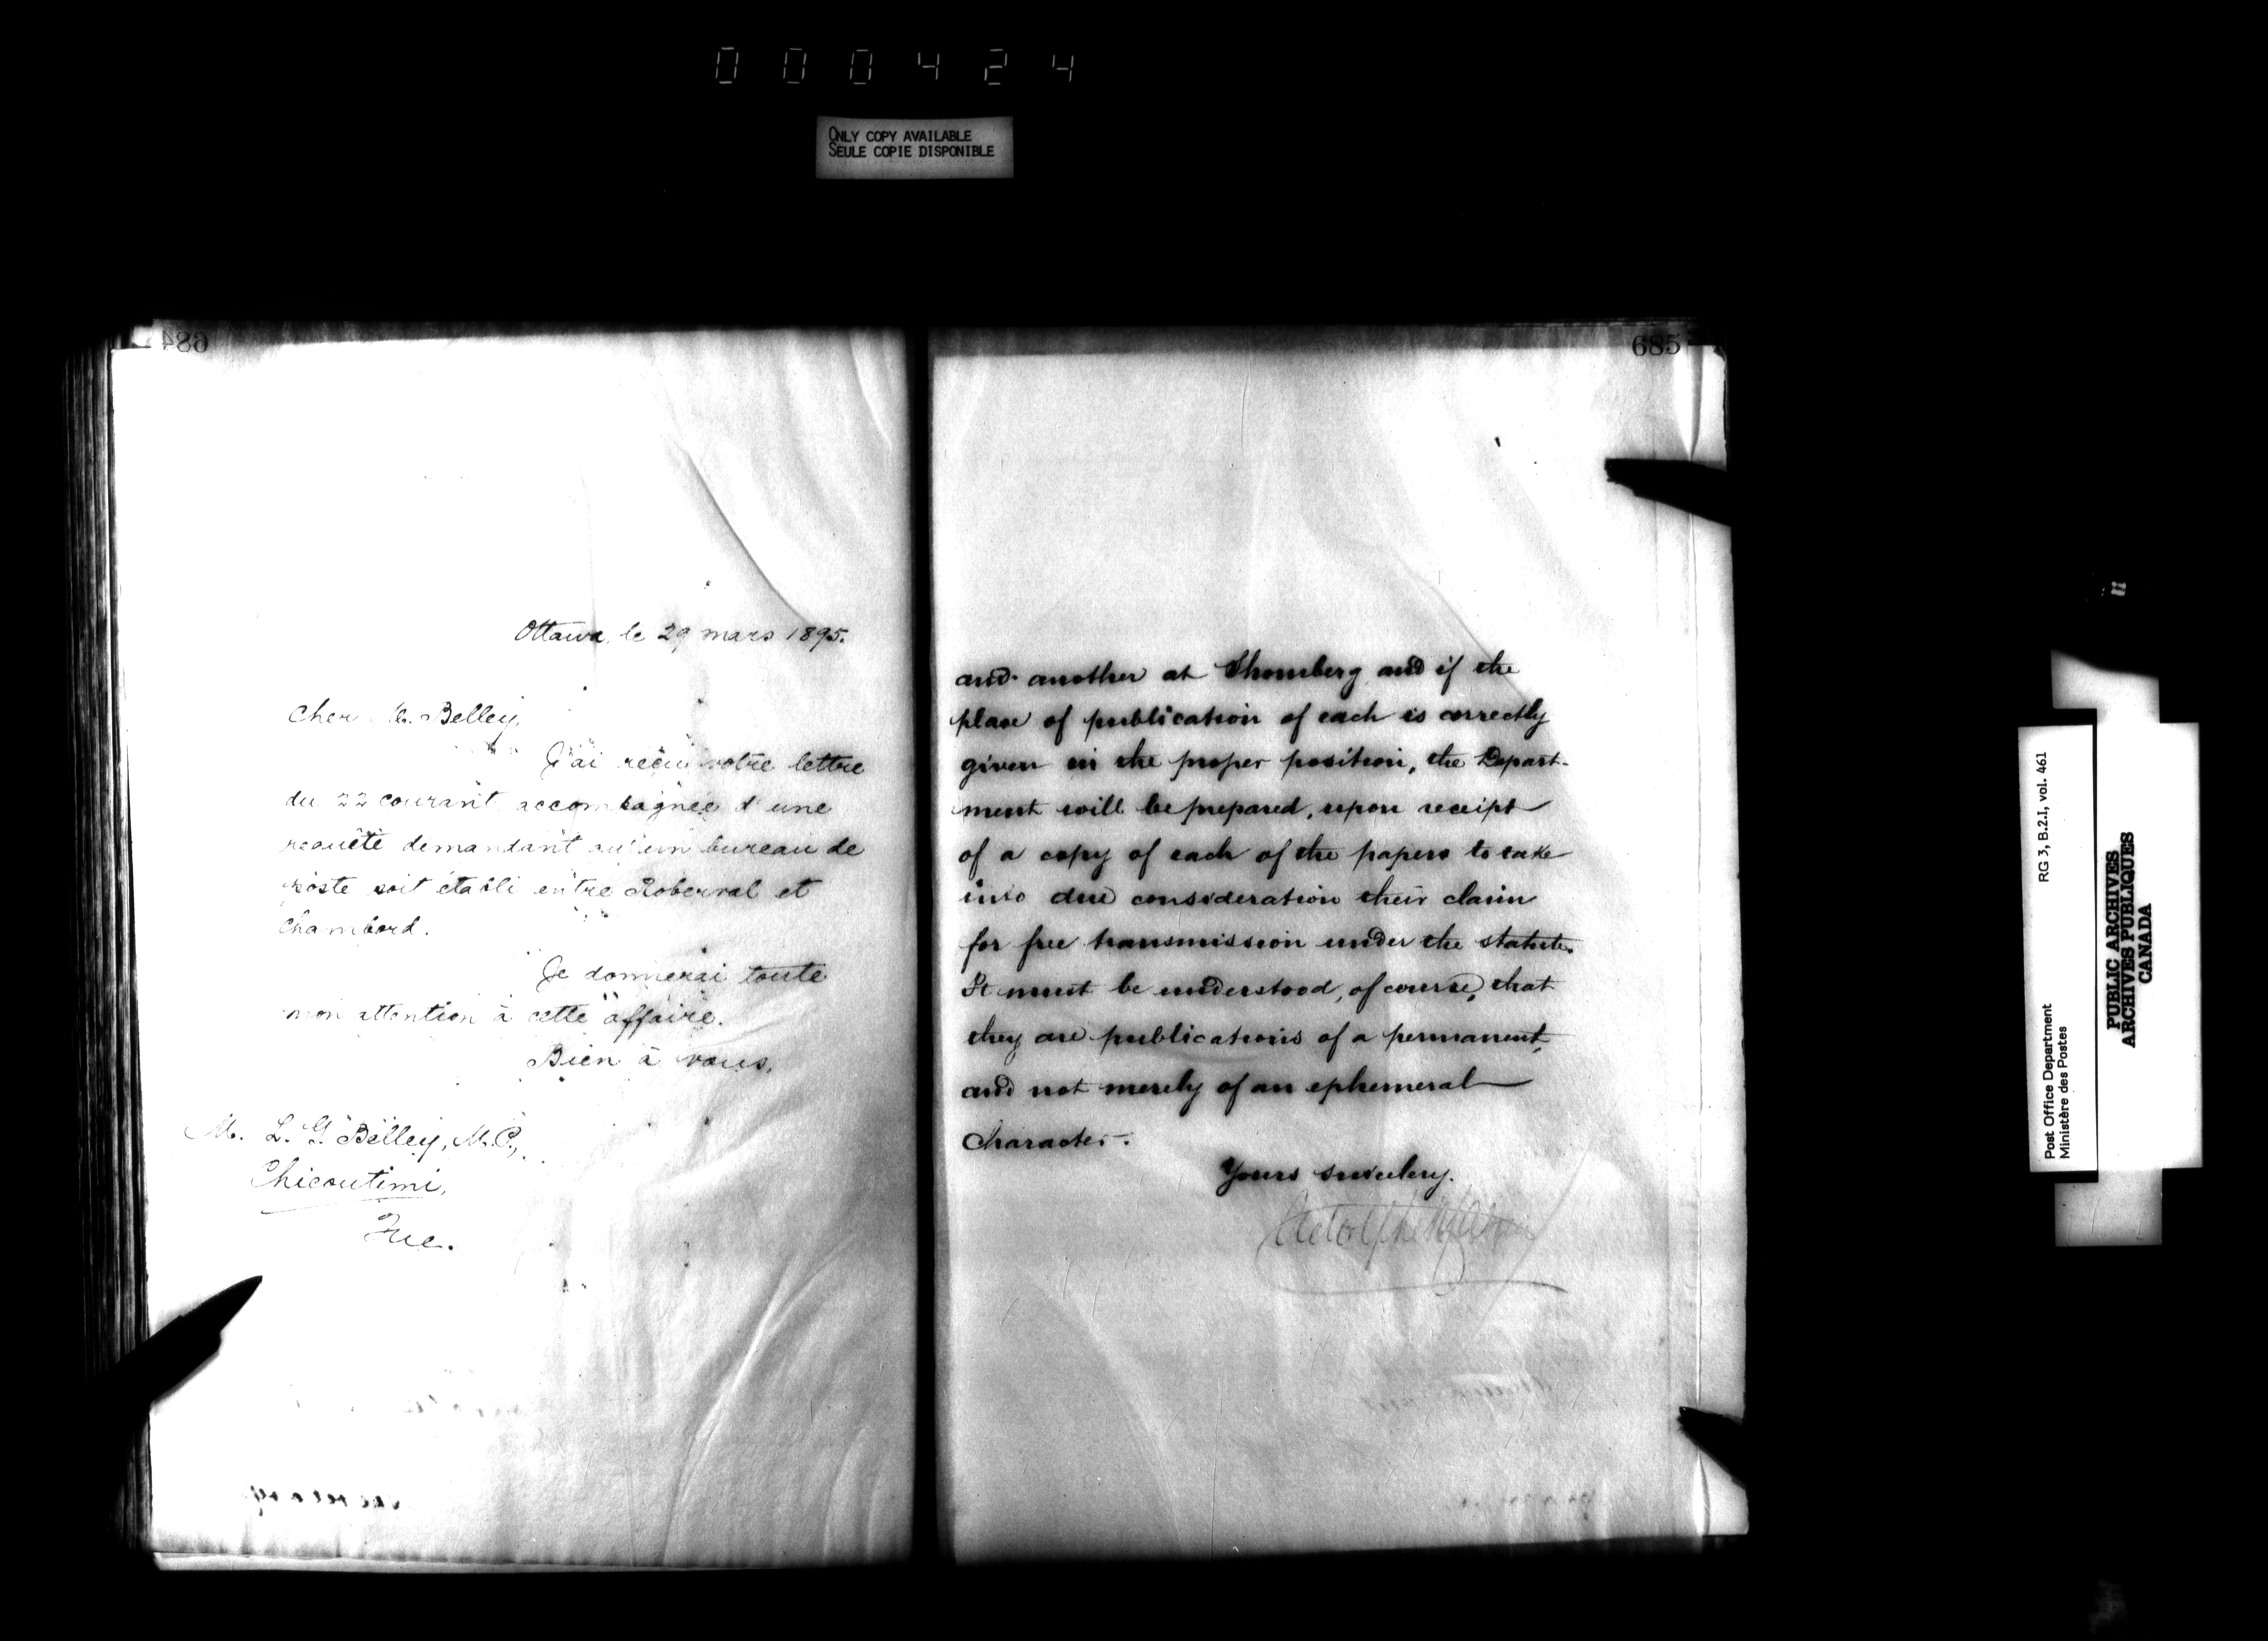 000424
ONLY COPY AVAILABLE
SEULE COPIE DISPONIBLE
684
Ottawa, le 29 mars 1895.
Cher M. Belley,
J'ai reçu votre lettre
du 22 courant accompagnée d'une
requête demandant qu'un bureau de
poste soit établi entre Roberval et
Chambord.
Je donnerai toute
mon attention à cette affaire.
Bien à vous,
M. L. G. Belley, M.P.,
Chicoutimi,
Que.
685
and another at Thornberg and if the
place of publication of each is correctly
given in the proper position, the Depart-
ment will be prepared, upon receipt
of a copy of each of the papers to take
into due consideration their claim
for free transmission under the statute.
It must be understood, of course, that
they are publications of a permanent,
and not merely of an ephemeral
character.
Yours sincerely.
RG 3, B.2.I, vol. 461
Post Office Department
Ministère des Postes
PUBLIC ARCHIVES
ARCHIVES PUBLIQUES
CANADA